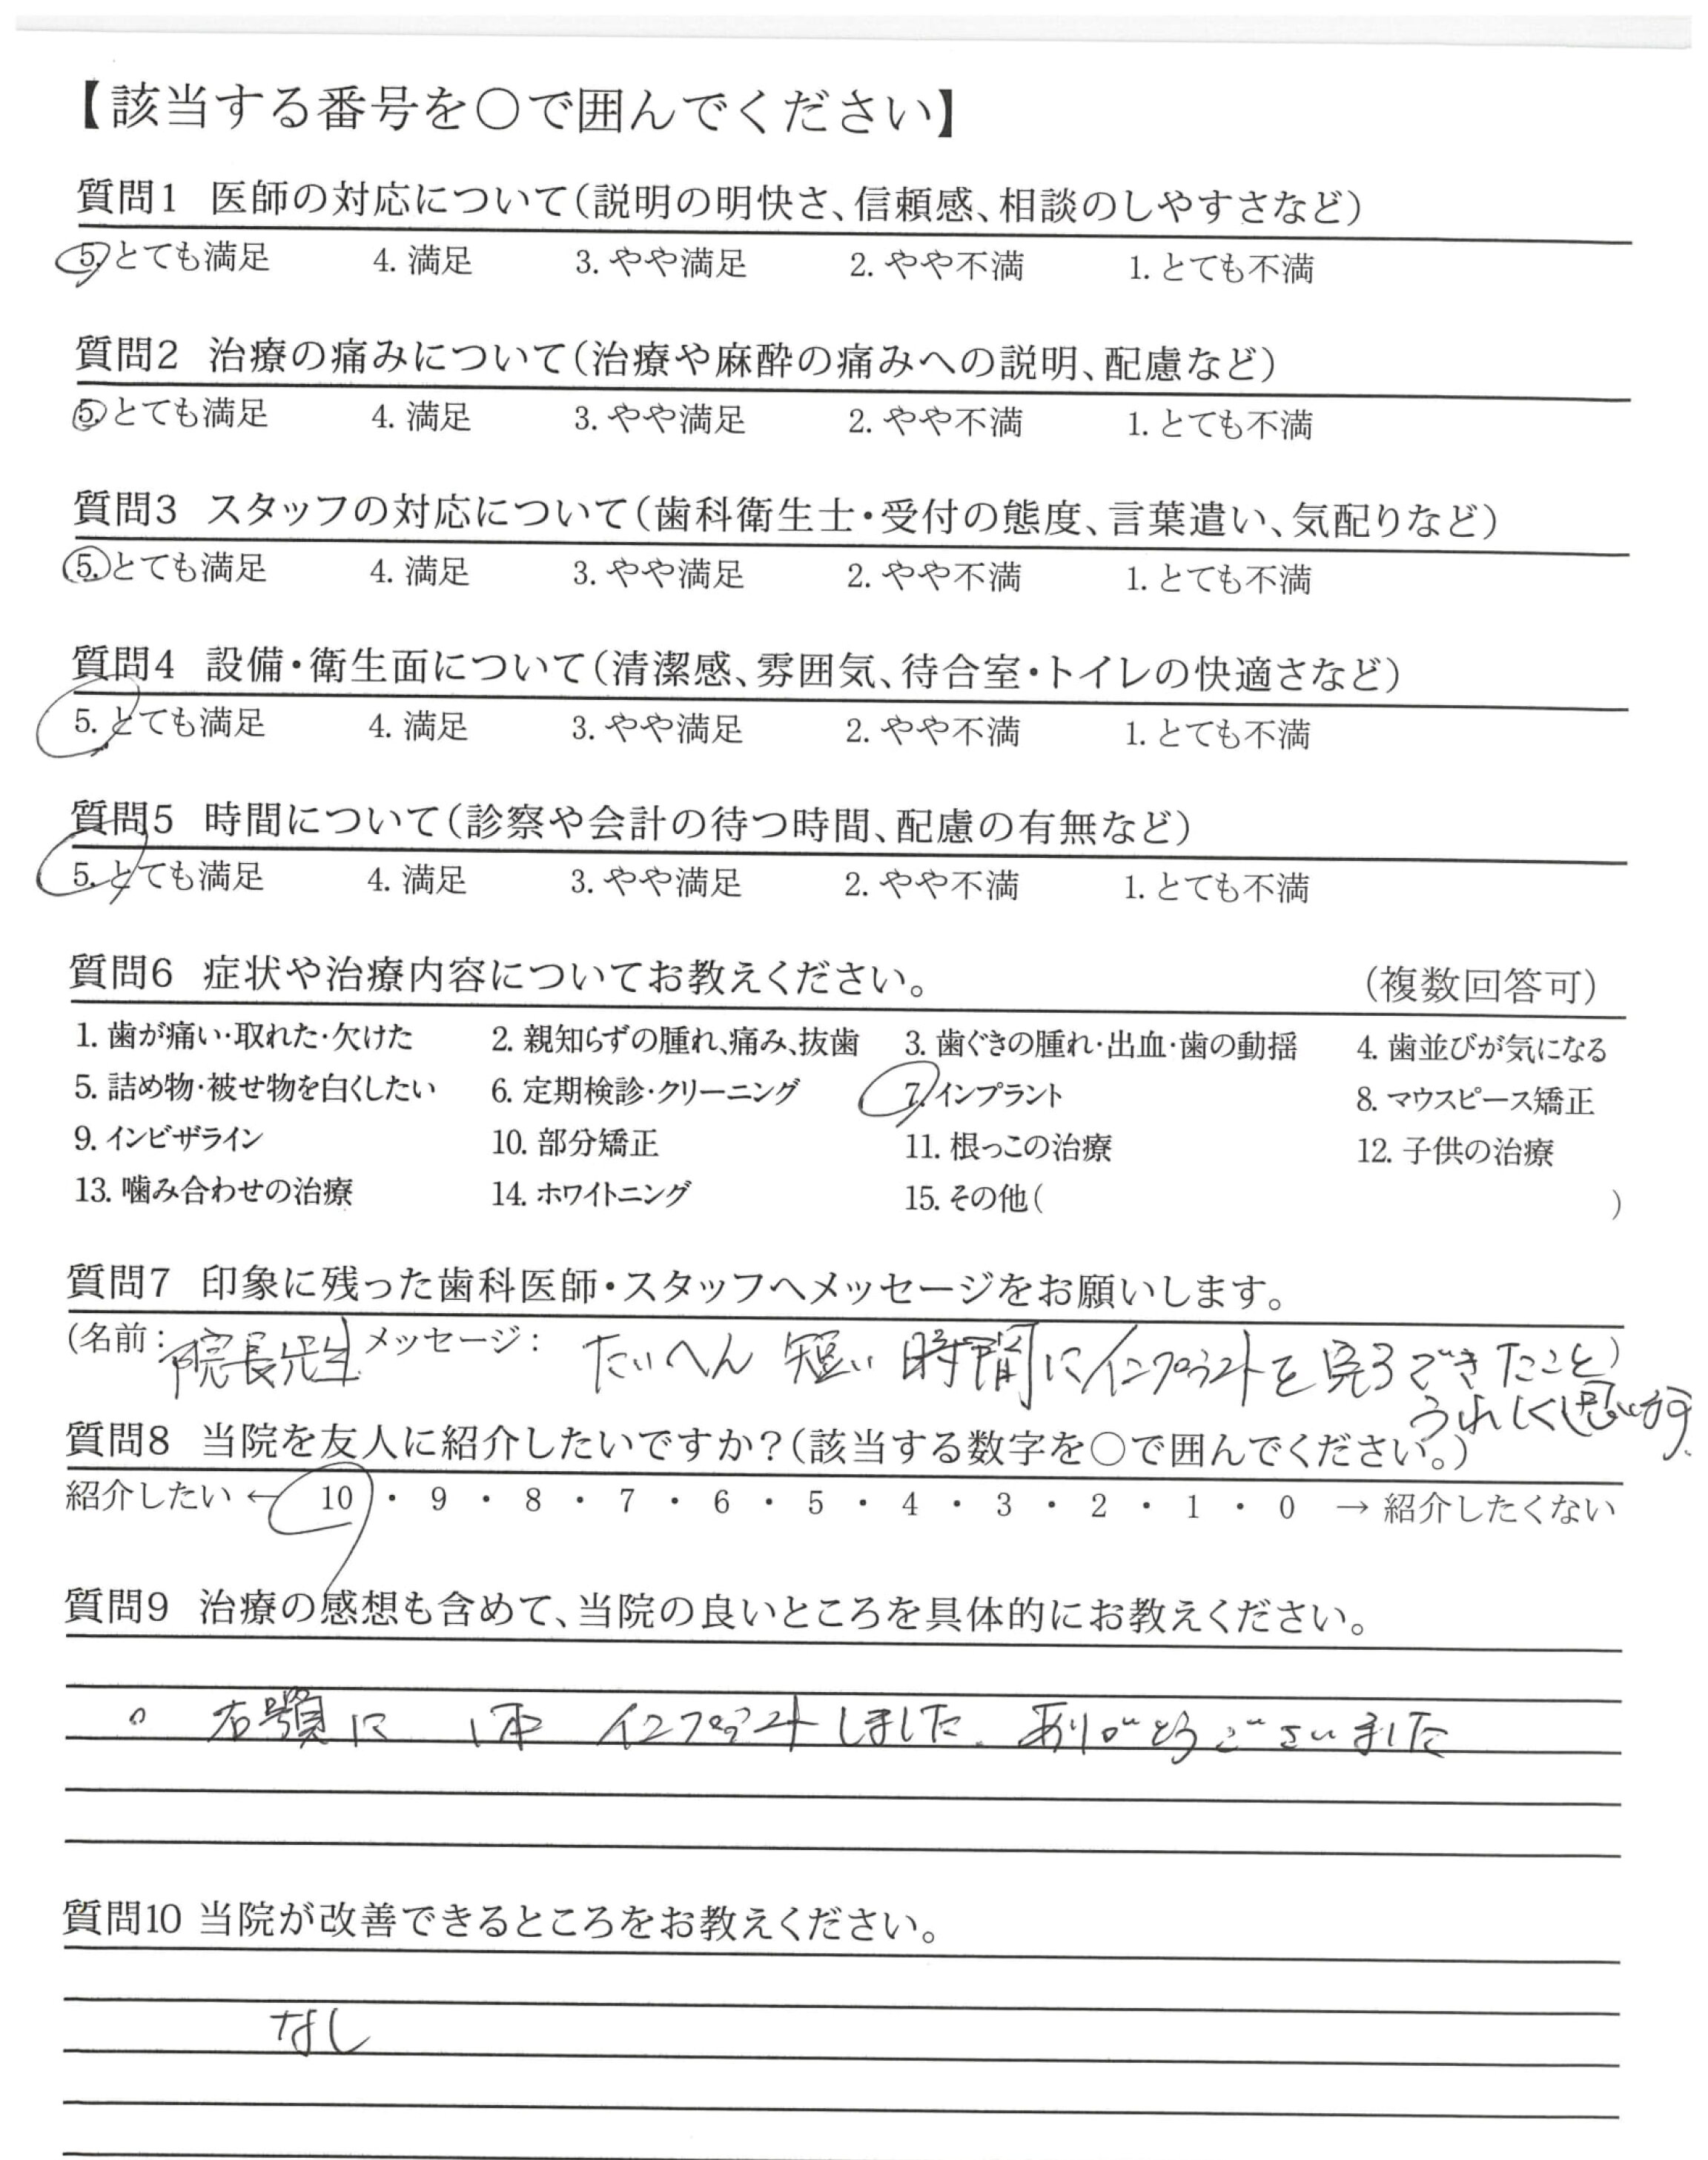 【該当する番号を〇で囲んでください】
質問1 医師の対応について(説明の明快さ、信頼感、相談のしやすさなど)
5. とても満足 4. 満足 3. やや満足 2. やや不満 1. とても不満
質問2 治療の痛みについて(治療や麻酔の痛みへの説明、配慮など)
5. とても満足 4. 満足 3. やや満足 2. やや不満 1. とても不満
質問3 スタッフの対応について(歯科衛生士・受付の態度、言葉遣い、気配りなど)
5. とても満足 4. 満足 3. やや満足 2. やや不満 1. とても不満
質問4 設備・衛生面について(清潔感、雰囲気、待合室・トイレの快適さなど)
5. とても満足 4. 満足 3. やや満足 2. やや不満 1. とても不満
質問5 時間について(診察や会計の待つ時間、配慮の有無など)
5. とても満足 4. 満足 3. やや満足 2. やや不満 1. とても不満
質問6 症状や治療内容についてお教えください。 (複数回答可)
1. 歯が痛い・取れた・欠けた 2. 親知らずの腫れ、痛み、抜歯 3. 歯ぐきの腫れ・出血・歯の動揺 4. 歯並びが気になる
5. 詰め物・被せ物を白くしたい 6. 定期検診・クリーニング 7. インプラント 8. マウスピース矯正
9. インビザライン 10. 部分矯正 11. 根っこの治療 12. 子供の治療
13. 噛み合わせの治療 14. ホワイトニング 15. その他( )
質問7 印象に残った歯科医師・スタッフへメッセージをお願いします。
(名前: 院長先生 メッセージ: たいへん 短い 時間にインプラントを完了できたこと)
うれしく思います。
質問8 当院を友人に紹介したいですか?(該当する数字を〇で囲んでください。)
紹介したい ← 10 ・ 9 ・ 8 ・ 7 ・ 6 ・ 5 ・ 4 ・ 3 ・ 2 ・ 1 ・ 0 → 紹介したくない
質問9 治療の感想も含めて、当院の良いところを具体的にお教えください。
。右顎に 1本 インプラントしました。ありがとうございました
質問10 当院が改善できるところをお教えください。
なし